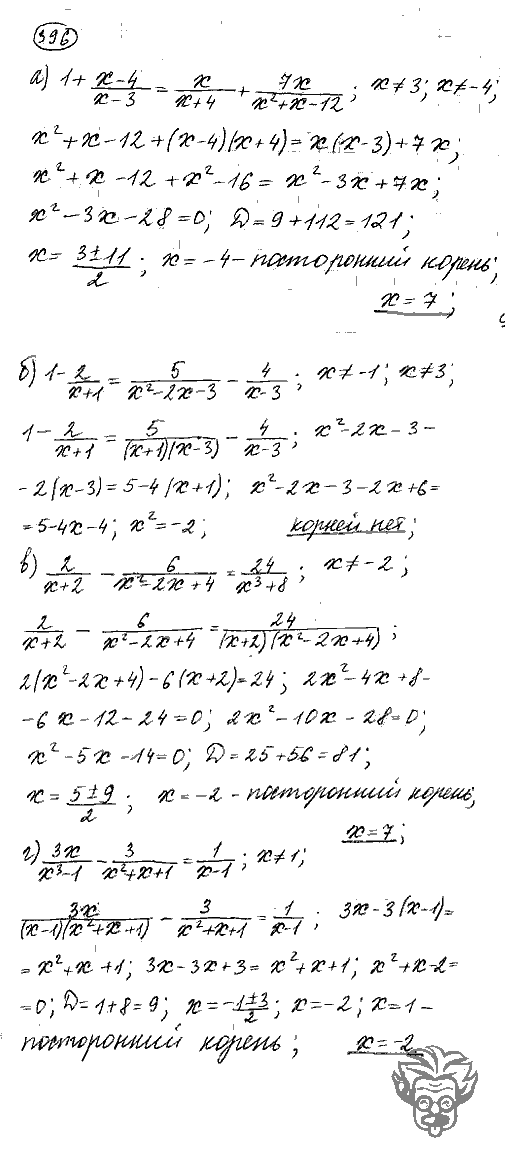 396
а) 1 + (x-4)/(x-3) = x/(x+4) + 7x/(x²+x-12); x≠3; x≠-4;
x²+x-12+(x-4)(x+4)=x(x-3)+7x;
x²+x-12+x²-16=x²-3x+7x;
x²-3x-28=0; D=9+112=121;
x=(3±11)/2; x=-4-посторонний корень;
x=7;
б) 1-2/(x+1)=5/(x²-2x-3)-4/(x-3); x≠-1; x≠3;
1-2/(x+1)=5/((x+1)(x-3))-4/(x-3); x²-2x-3-
-2(x-3)=5-4(x+1); x²-2x-3-2x+6=
=5-4x-4; x²=-2; корней нет;
в) 2/(x+2)-6/(x²-2x+4)=24/(x³+8); x≠-2;
2/(x+2)-6/(x²-2x+4)=24/((x+2)(x²-2x+4));
2(x²-2x+4)-6(x+2)=24; 2x²-4x+8-
-6x-12-24=0; 2x²-10x-28=0;
x²-5x-14=0; D=25+56=81;
x=(5±9)/2; x=-2-посторонний корень,
x=7;
г) 3x/(x³-1)-3/(x²+x+1)=1/(x-1); x≠1;
3x/((x-1)(x²+x+1))-3/(x²+x+1)=1/(x-1); 3x-3(x-1)=
=x²+x+1; 3x-3x+3=x²+x+1; x²+x-2=
=0; D=1+8=9; x=(-1±3)/2; x=-2; x=1-
посторонний корень; x=-2